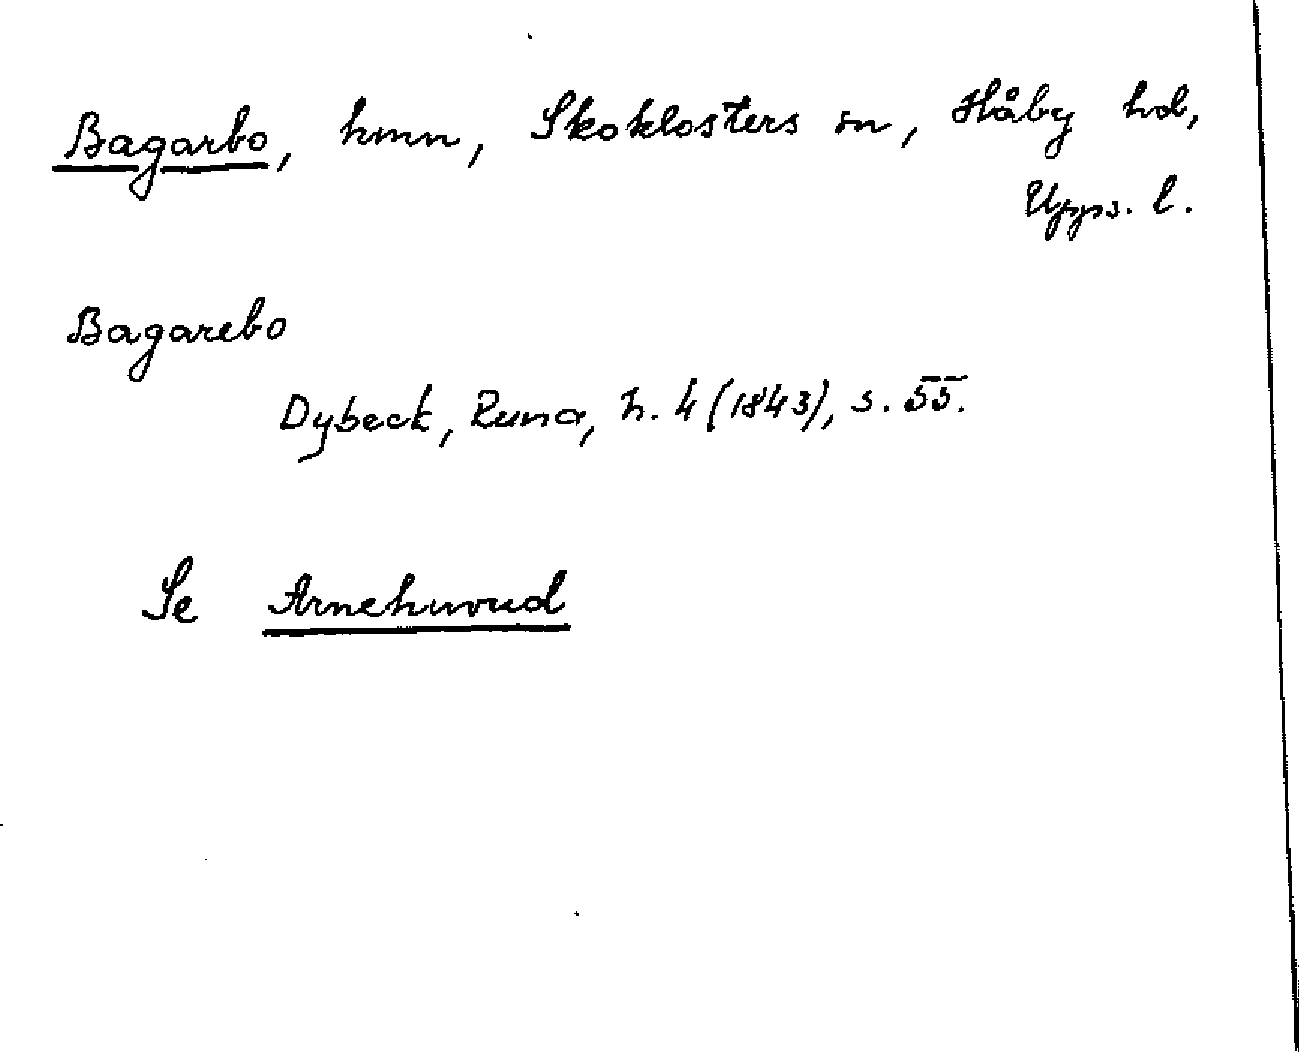 Bagarbo, hmn, Skoklosters sn, Håby hd,
Upps. l.
Bagarebo
Dybeck, Runa, h. 4 (1843), s. 55.
Se Arnehuvud